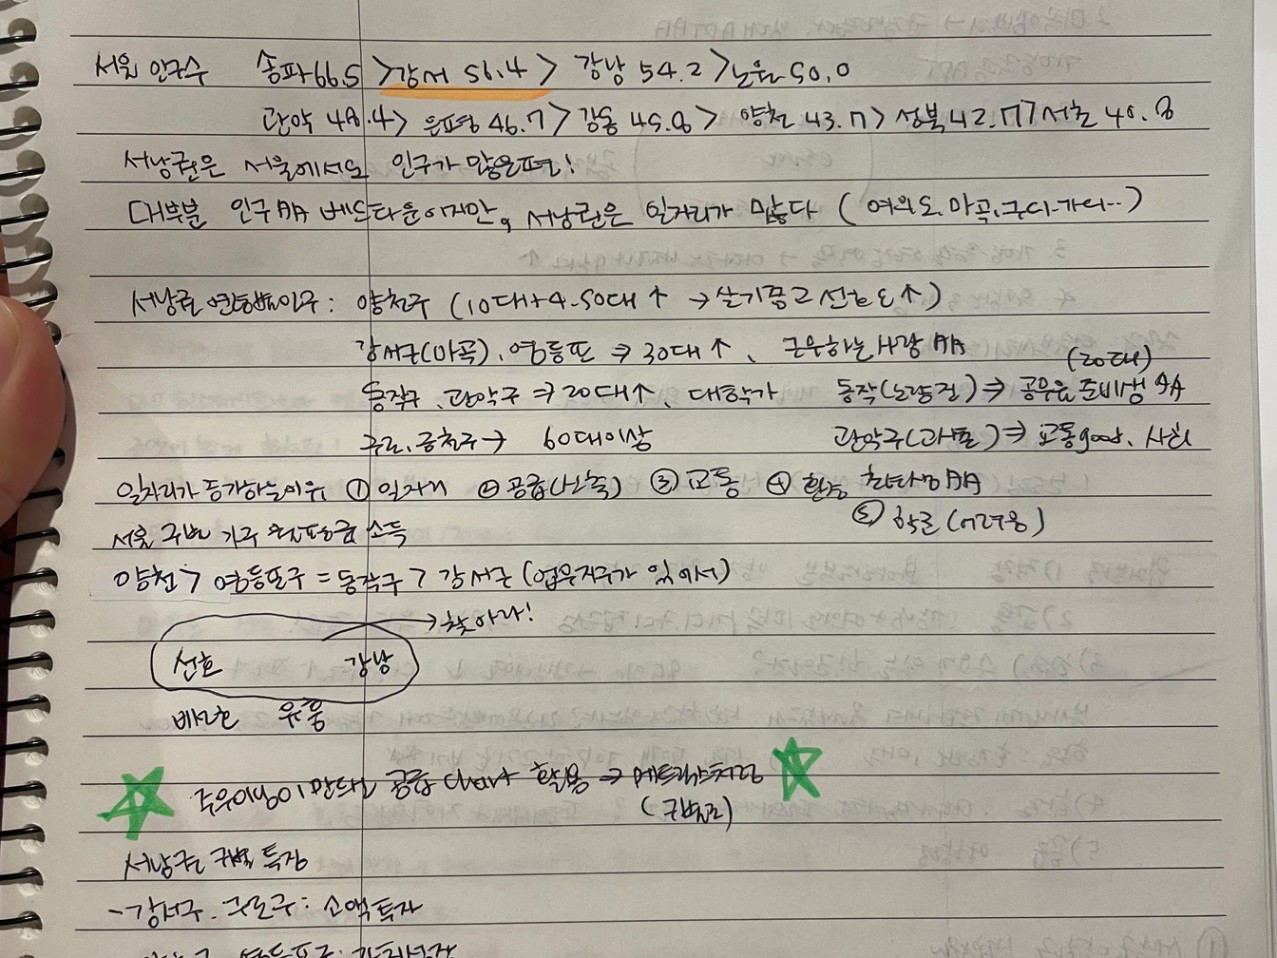 서울 인구수 송파 66.5 > 강서 56.4 > 강남 54.2 > 노원 50.0
관악 48.4 > 은평 46.7 > 강동 45.8 > 양천 43.7 > 성북 42.7 > 서초 40.8
서남권은 서울에서도 인구가 많은편!
대부분 인구 베드타운이지만, 서남권은 일자리가 많다 (여의도, 마곡, 구디·가디..)
서남권 연령별인구: 양천구 (10대+4·50대 ↑ → 살기좋고 선호도 ↑)
강서구(마곡), 영등포 ⇒ 30대 ↑, 근무하는 사람
(20대)
동작구, 관악구 ⇒ 20대 ↑, 대학가 동작(노량진) ⇒ 공무원 준비생
구로, 금천구 → 60대이상 관악구 ⇒ 교통good,
일자리가 증가하는이유 ① 일자리 ② 공급(신축) ③ 교통 ④ 환경
⑤ 학군(어려움)
서울 구별 가구 월평균 소득
양천 > 영등포구 = 동작구 > 강서구 (업무지구가 있어서)
→ 찾아라!
선호 강남
비선호
공급 chart 활용 ⇒
(구별로)
서남권 구별 특징
- 강서구, 구로구: 소액투자
영등포구: